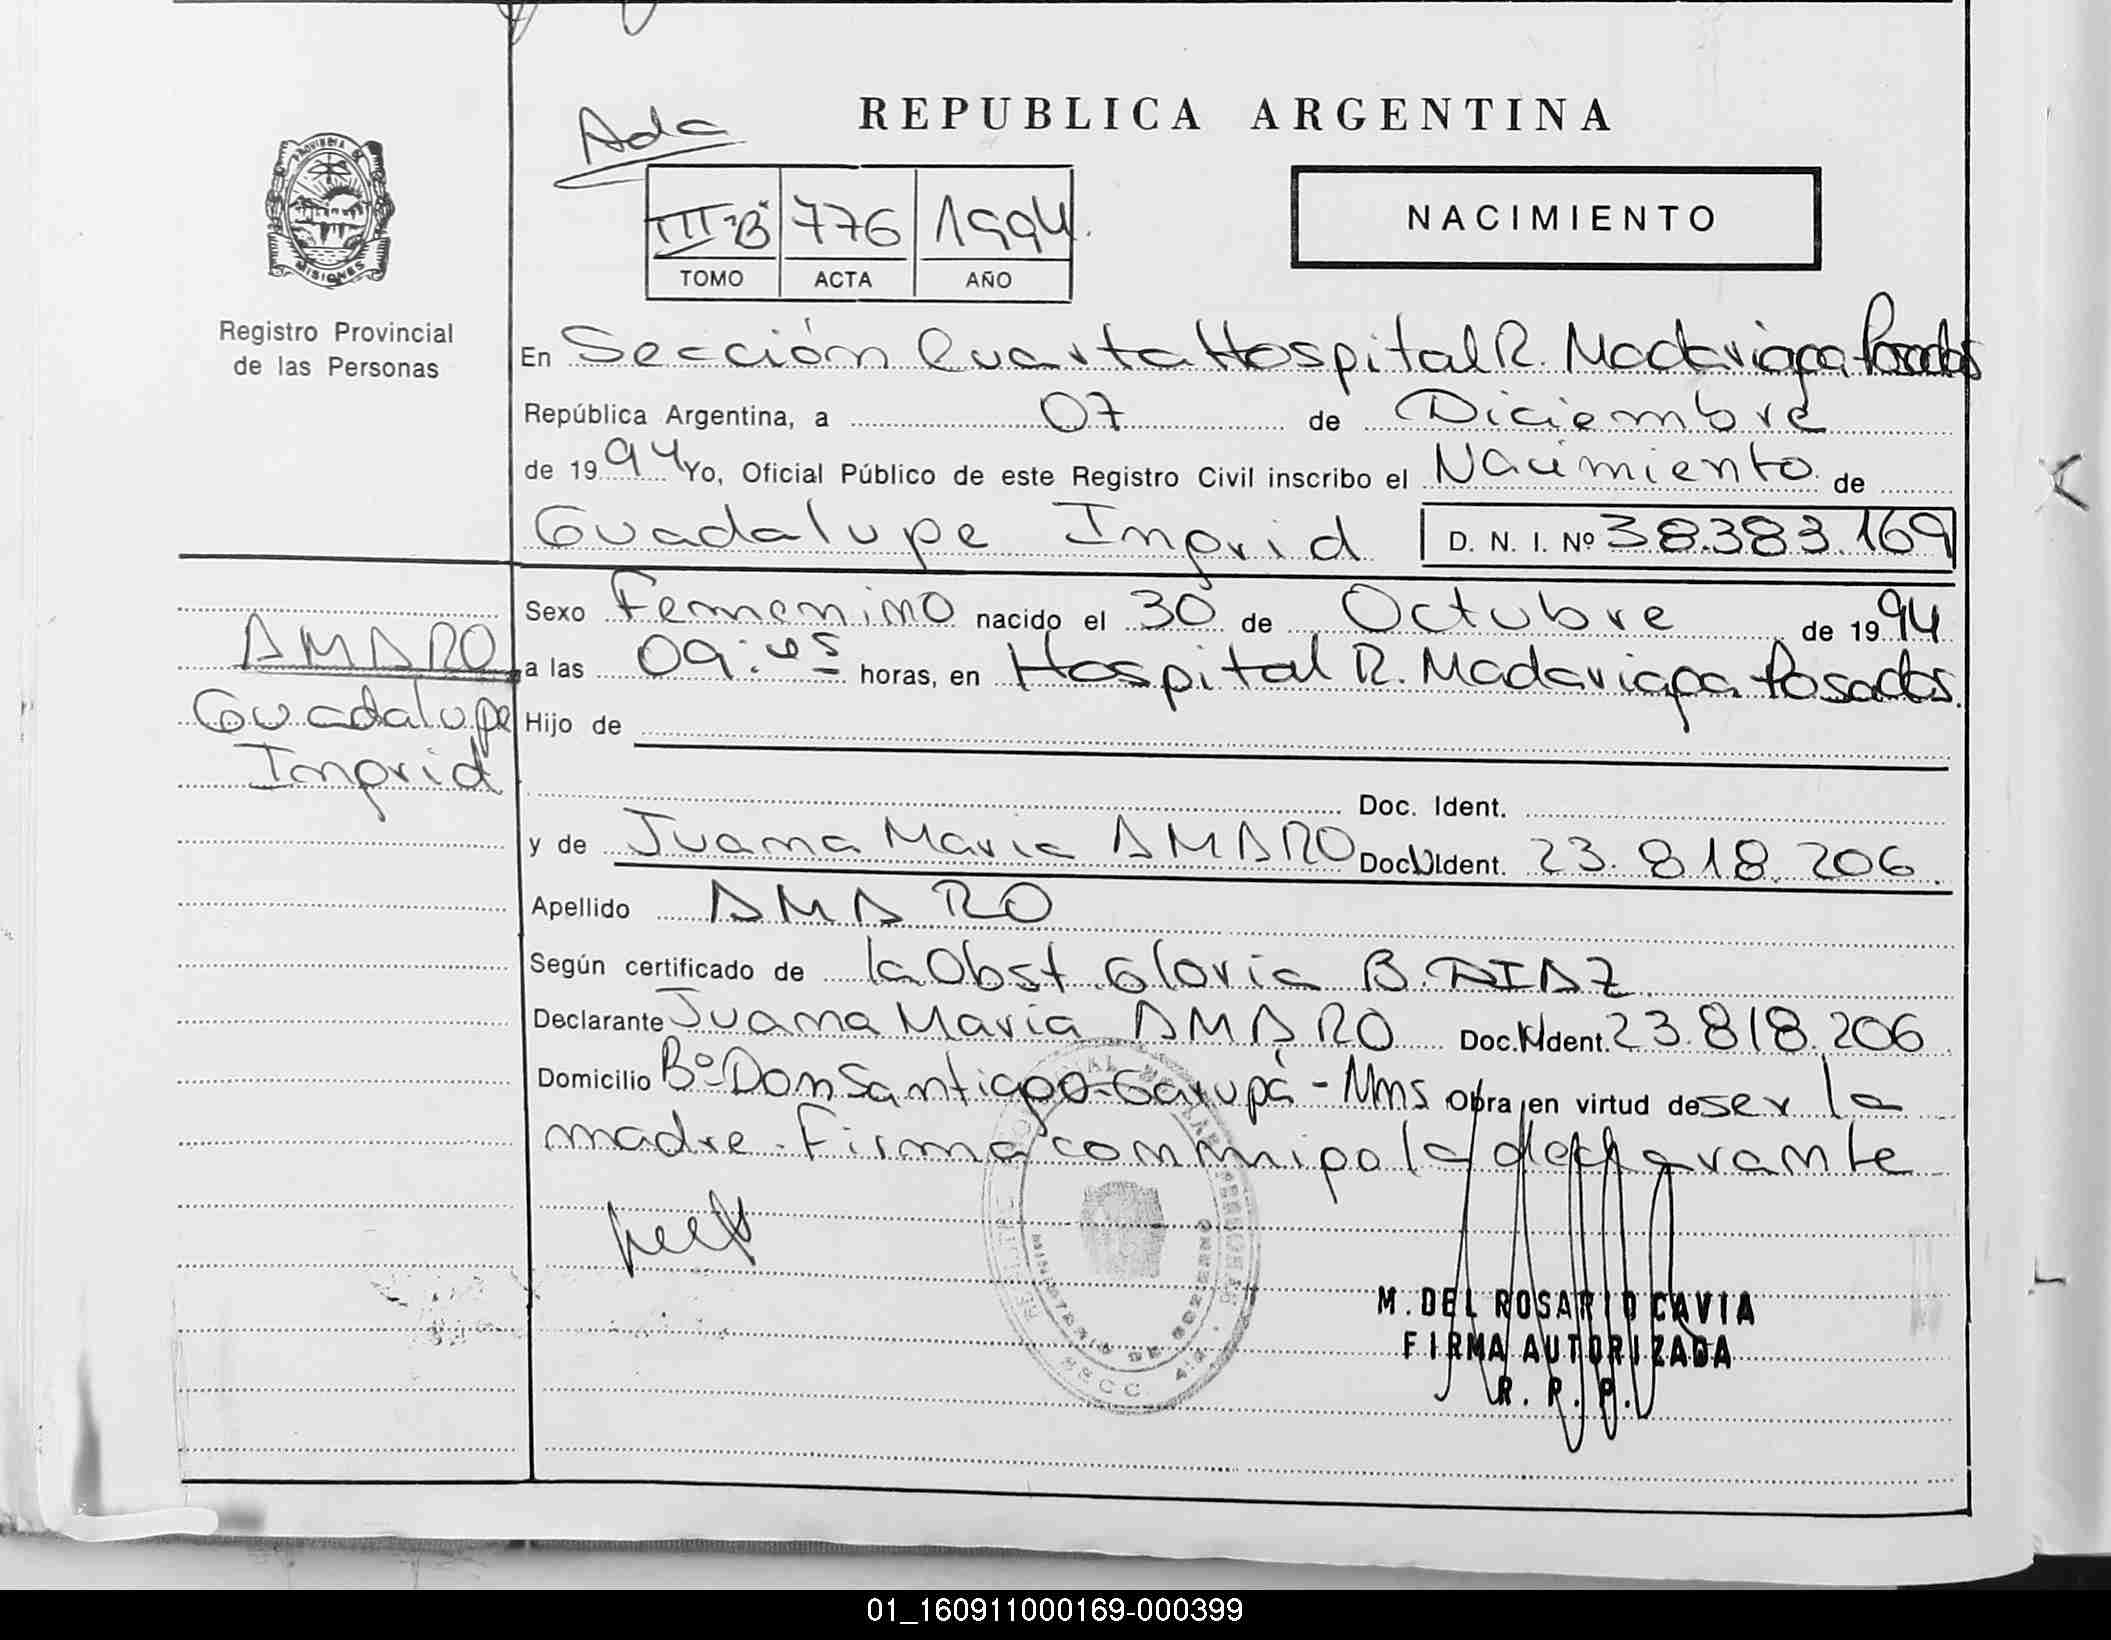 REPUBLICA ARGENTINA
Ada
PROVINCIA DE
MISIONES
Registro Provincial
de las Personas
III "B" 776 1994.
TOMO ACTA AÑO
NACIMIENTO
En Sección Cuarta Hospital R. Madariaga Posadas
República Argentina, a 07 de Diciembre
de 1994 Yo, Oficial Público de este Registro Civil inscribo el Nacimiento de
Guadalupe Ingrid D. N. I. Nº 38.383.169
Sexo Femenino nacido el 30 de Octubre de 1994
a las 09:45 horas, en Hospital R. Madariaga Posadas.
Hijo de
Doc. Ident.
y de Juana Maria AMARO Doc. Ident. 23.818.206.
Apellido AMARO
Según certificado de la Obst. Gloria B. DIAZ
Declarante Juana Maria AMARO Doc. Ident. 23.818.206
Domicilio Bº Don Santiago-Garupá - Mns Obra en virtud de ser la
madre. Firma conmigo la declarante
AMARO
Guadalupe
Ingrid
MINISTERIO DE GOBIERNO
M. DEL ROSARIO CAVIA
FIRMA AUTORIZADA
R. R. P.
01_160911000169-000399